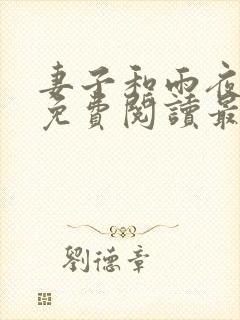 妻子和雨夜
免費閱讀最
劉德章